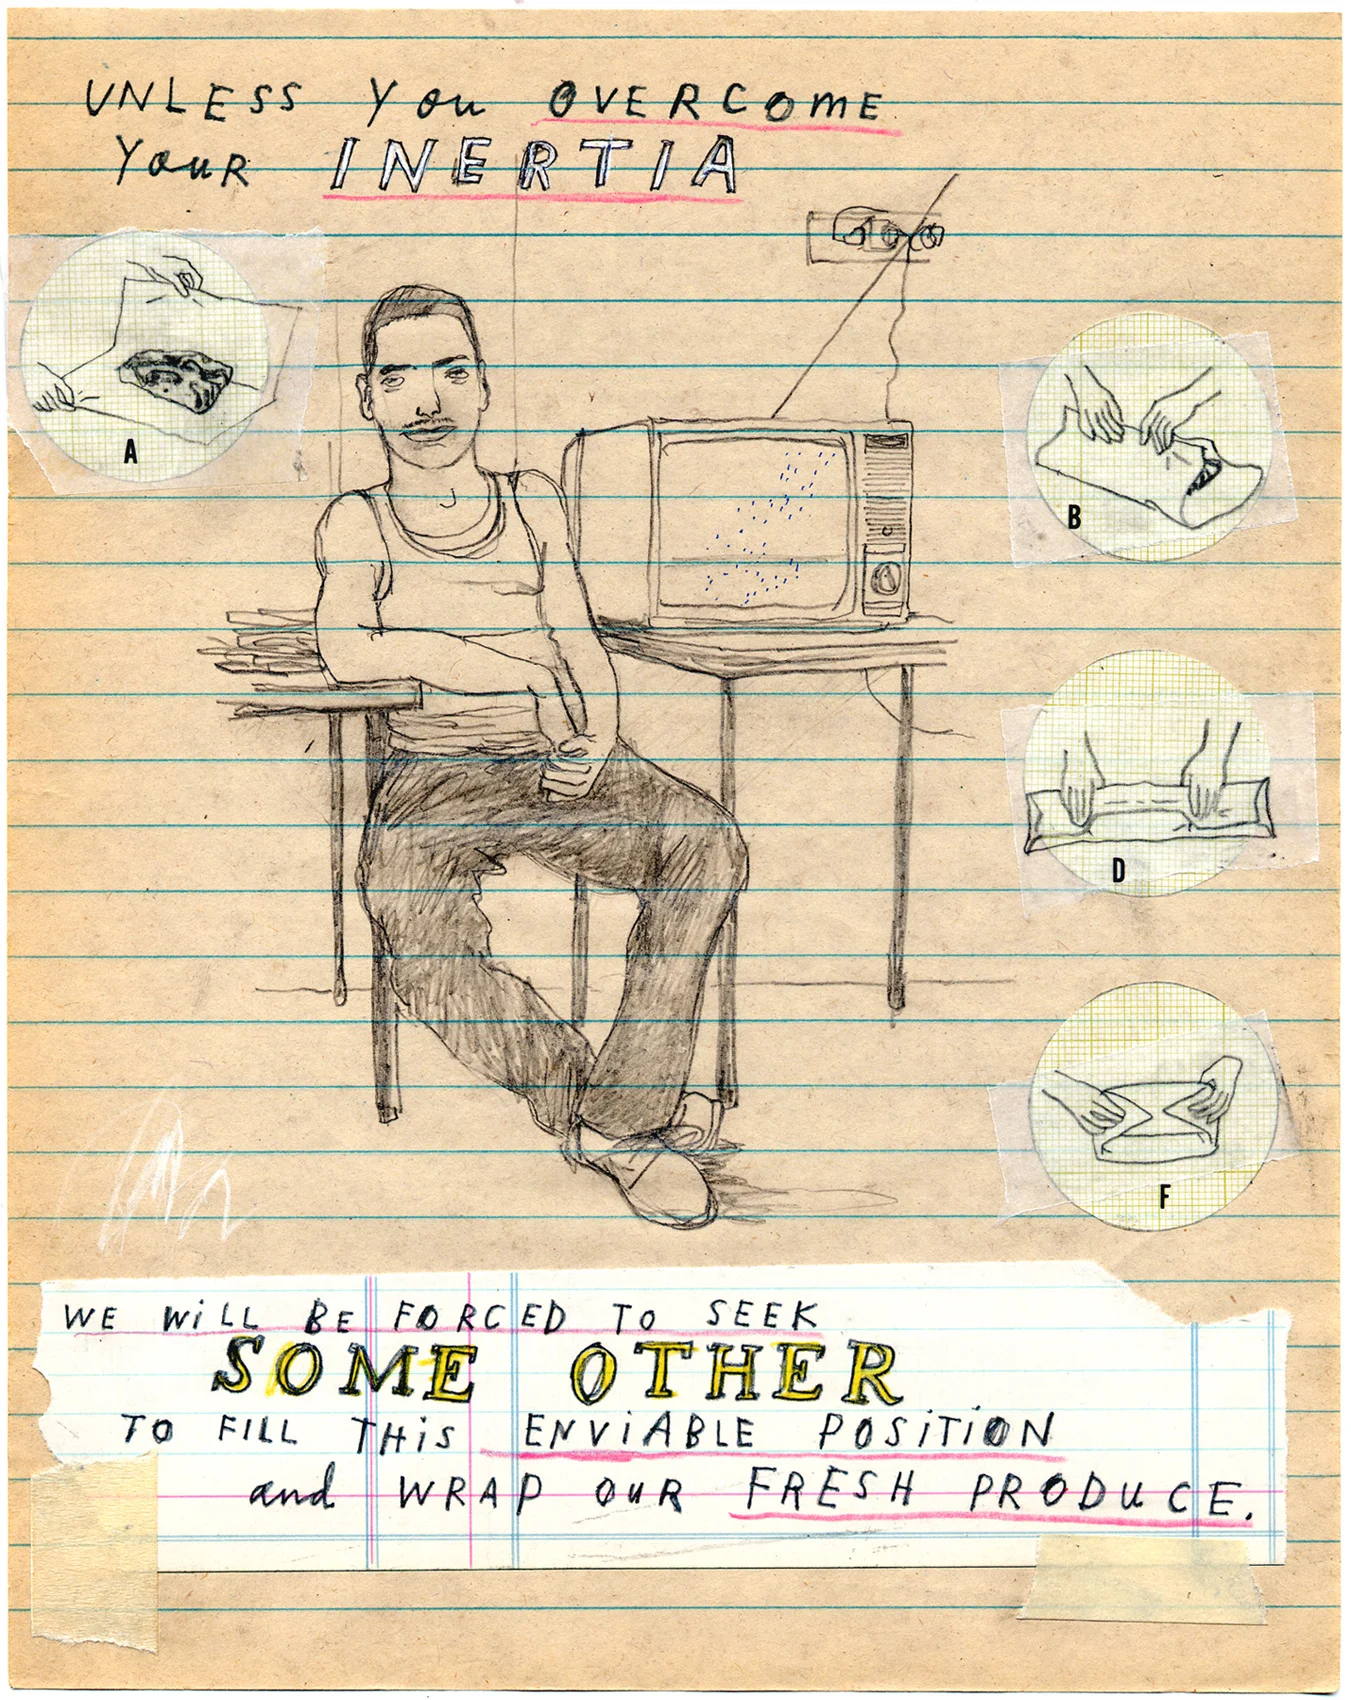 UNLESS You OVERCOmE
YouR INERTIA
A
B
D
F
WE WiLL BE FORCED TO SEEK
SOME OTHER
TO FILL THiS ENViABLE POSiTiON
and WRAP OuR FRESH PRODuCE.